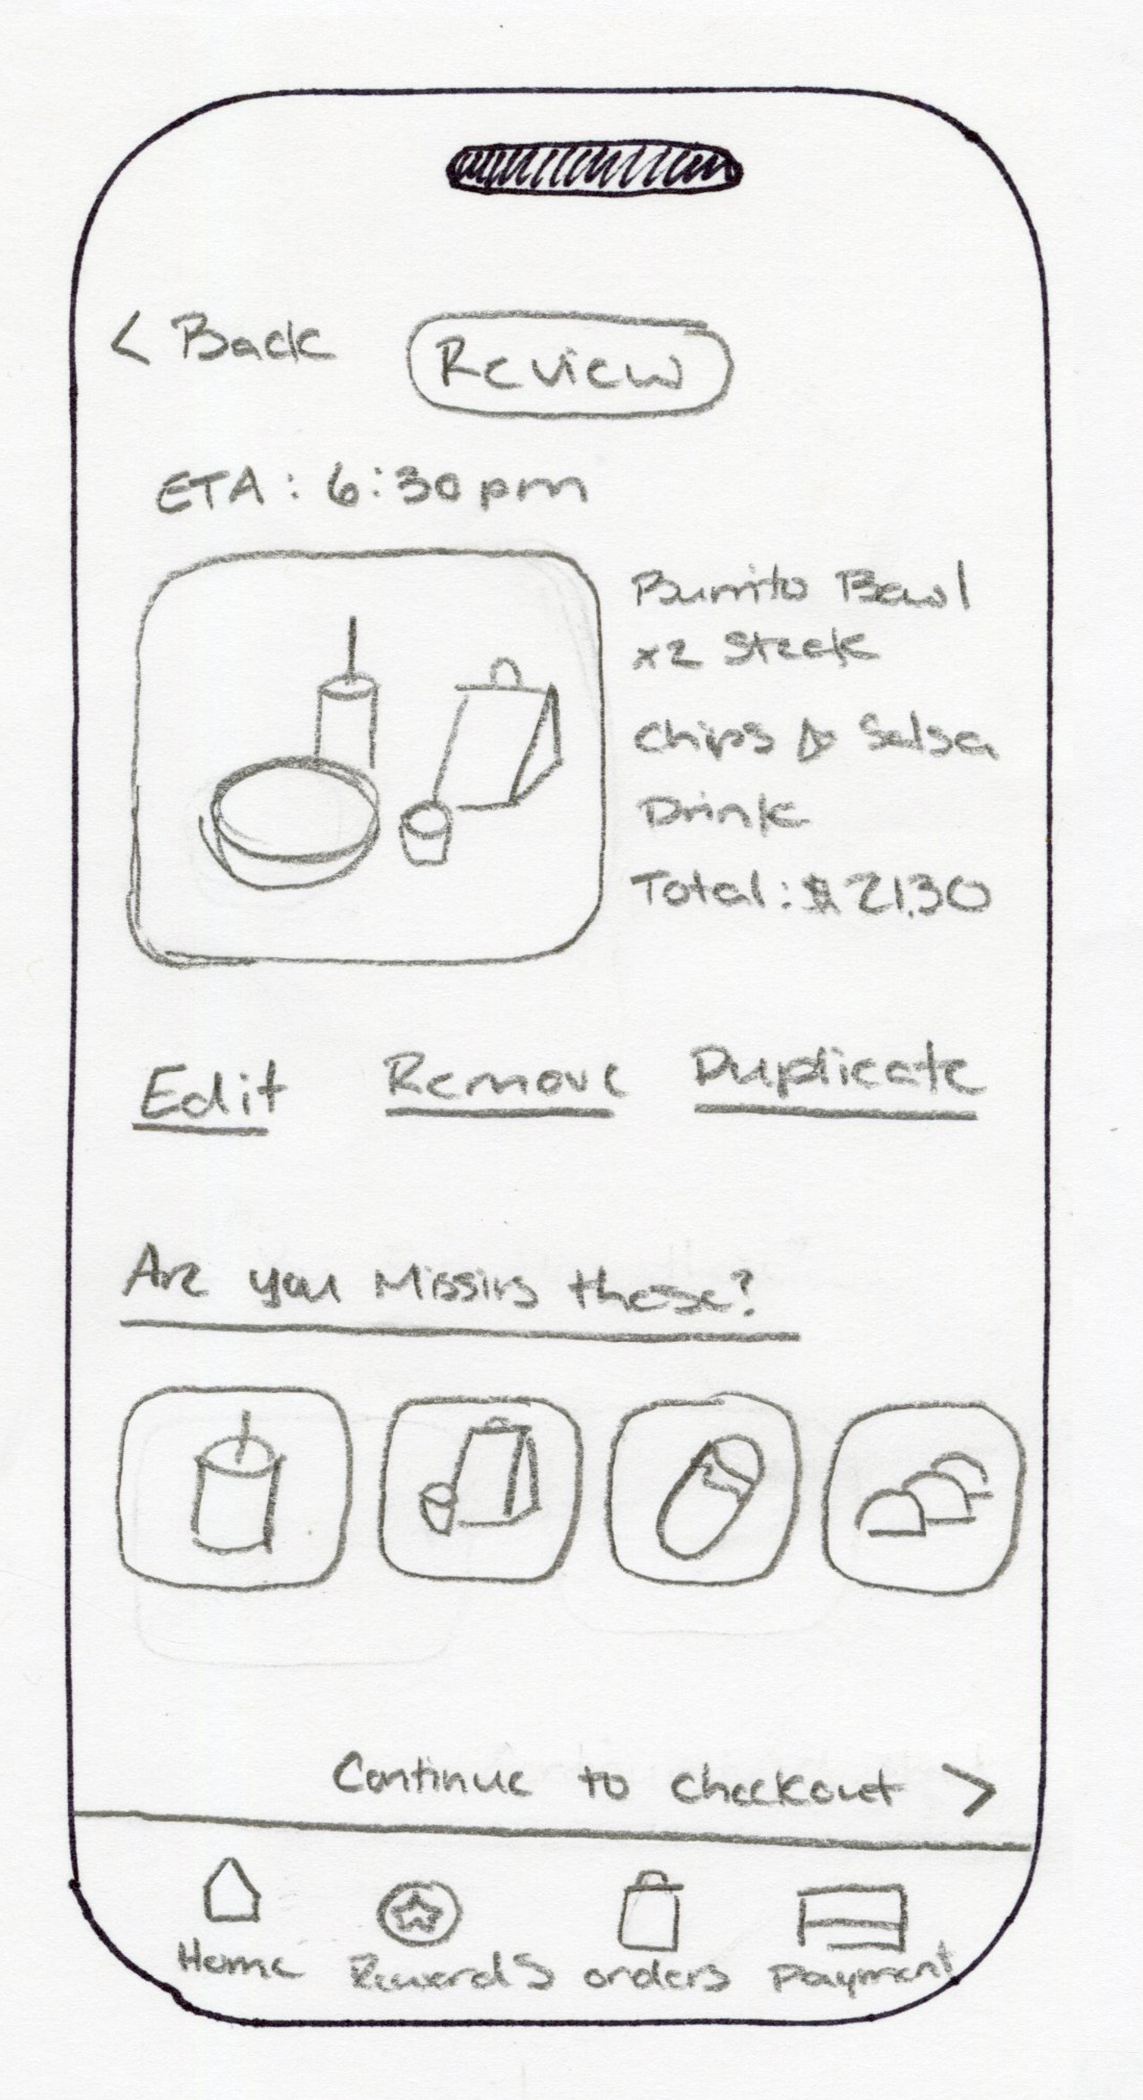 < Back
Review
ETA: 6:30pm
Burrito Bowl
x2 Steak
Chips & Salsa
Drink
Total: $21.30
Edit Remove Duplicate
Are you Missing these?
Continue to checkout >
Home Rewards orders payment